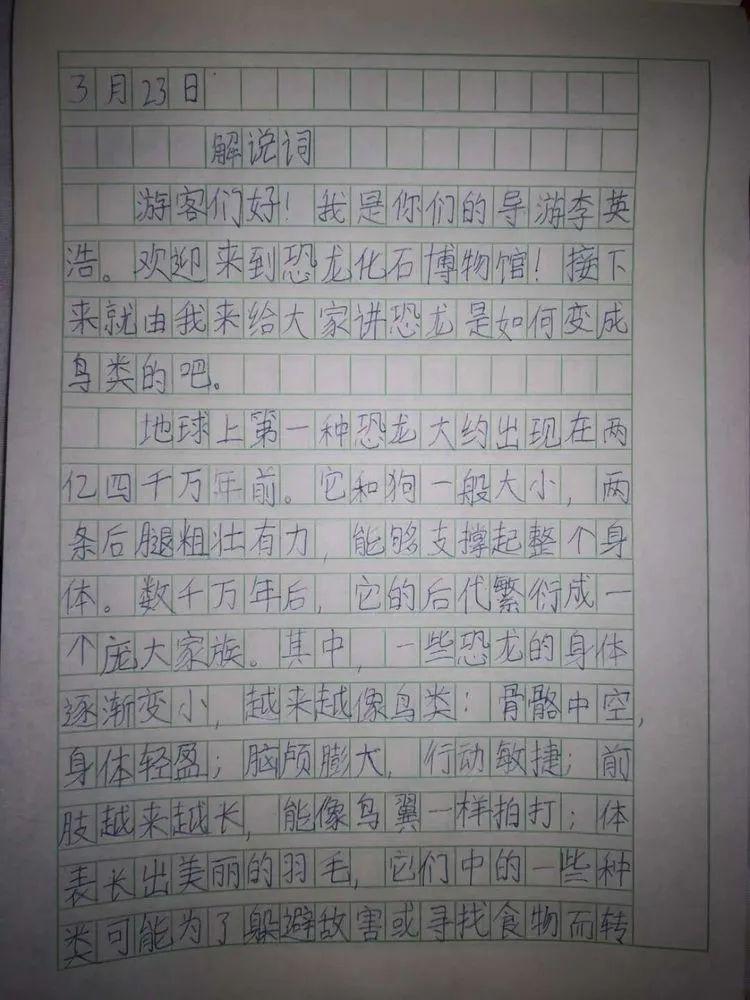 3月23日
解说词
游客们好！我是你们的导游李英
浩。欢迎来到恐龙化石博物馆！接下
来就由我来给大家讲恐龙是如何变成
鸟类的吧。
地球上第一种恐龙大约出现在两
亿四千万年前。它和狗一般大小，两
条后腿粗壮有力，能够支撑起整个身
体。数千万年后，它的后代繁衍成一
个庞大家族。其中，一些恐龙的身体
逐渐变小，越来越像鸟类：骨骼中空，
身体轻盈；脑颅膨大，行动敏捷；前
肢越来越长，能像鸟翼一样拍打；体
表长出美丽的羽毛，它们中的一些种
类可能为了躲避敌害或寻找食物而转